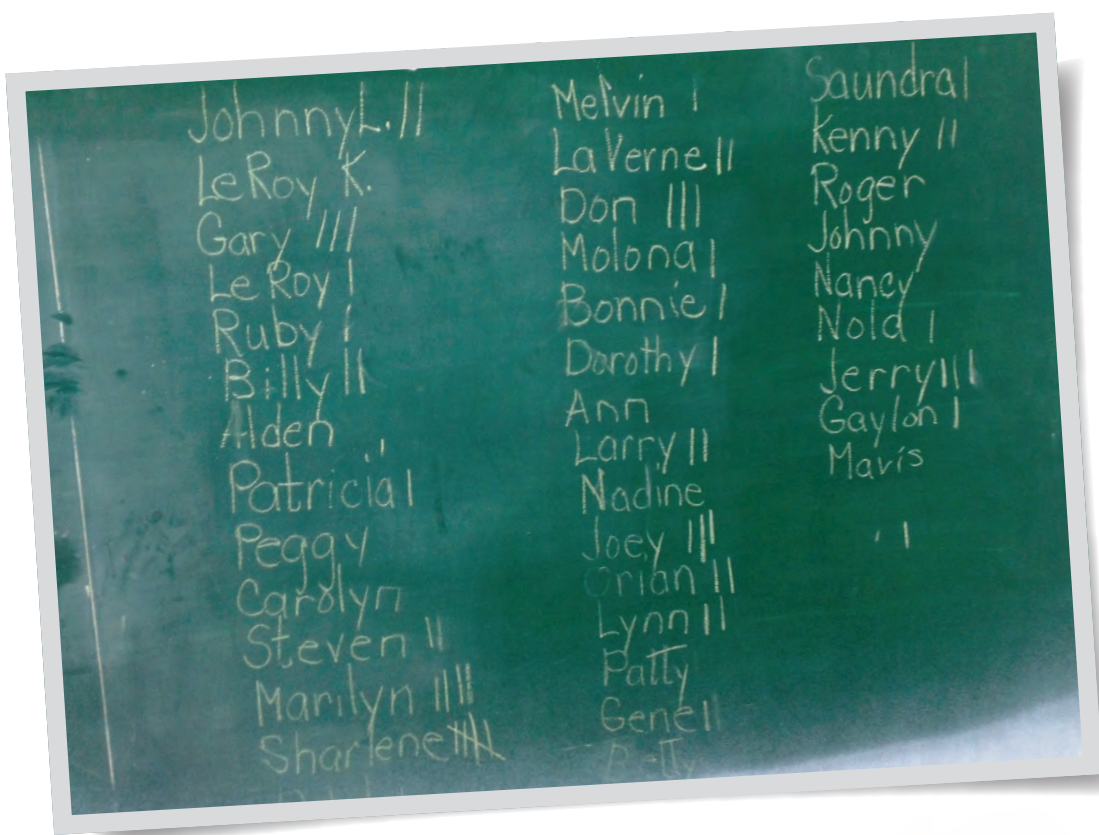 Johnny L. II
LeRoy K.
Gary III
LeRoy I
Ruby I
Billy II
Alden
Patricia I
Peggy
Carolyn
Steven II
Marilyn IIII
Sharlene
Melvin I
LaVerne II
Don III
Molona I
Bonnie I
Dorothy I
Ann
Larry II
Nadine
Joey III
Orian II
Lynn II
Patty
Gene II
Betty
Saundra I
Kenny II
Roger
Johnny
Nancy
Nola I
Jerry III
Gaylon I
Mavis